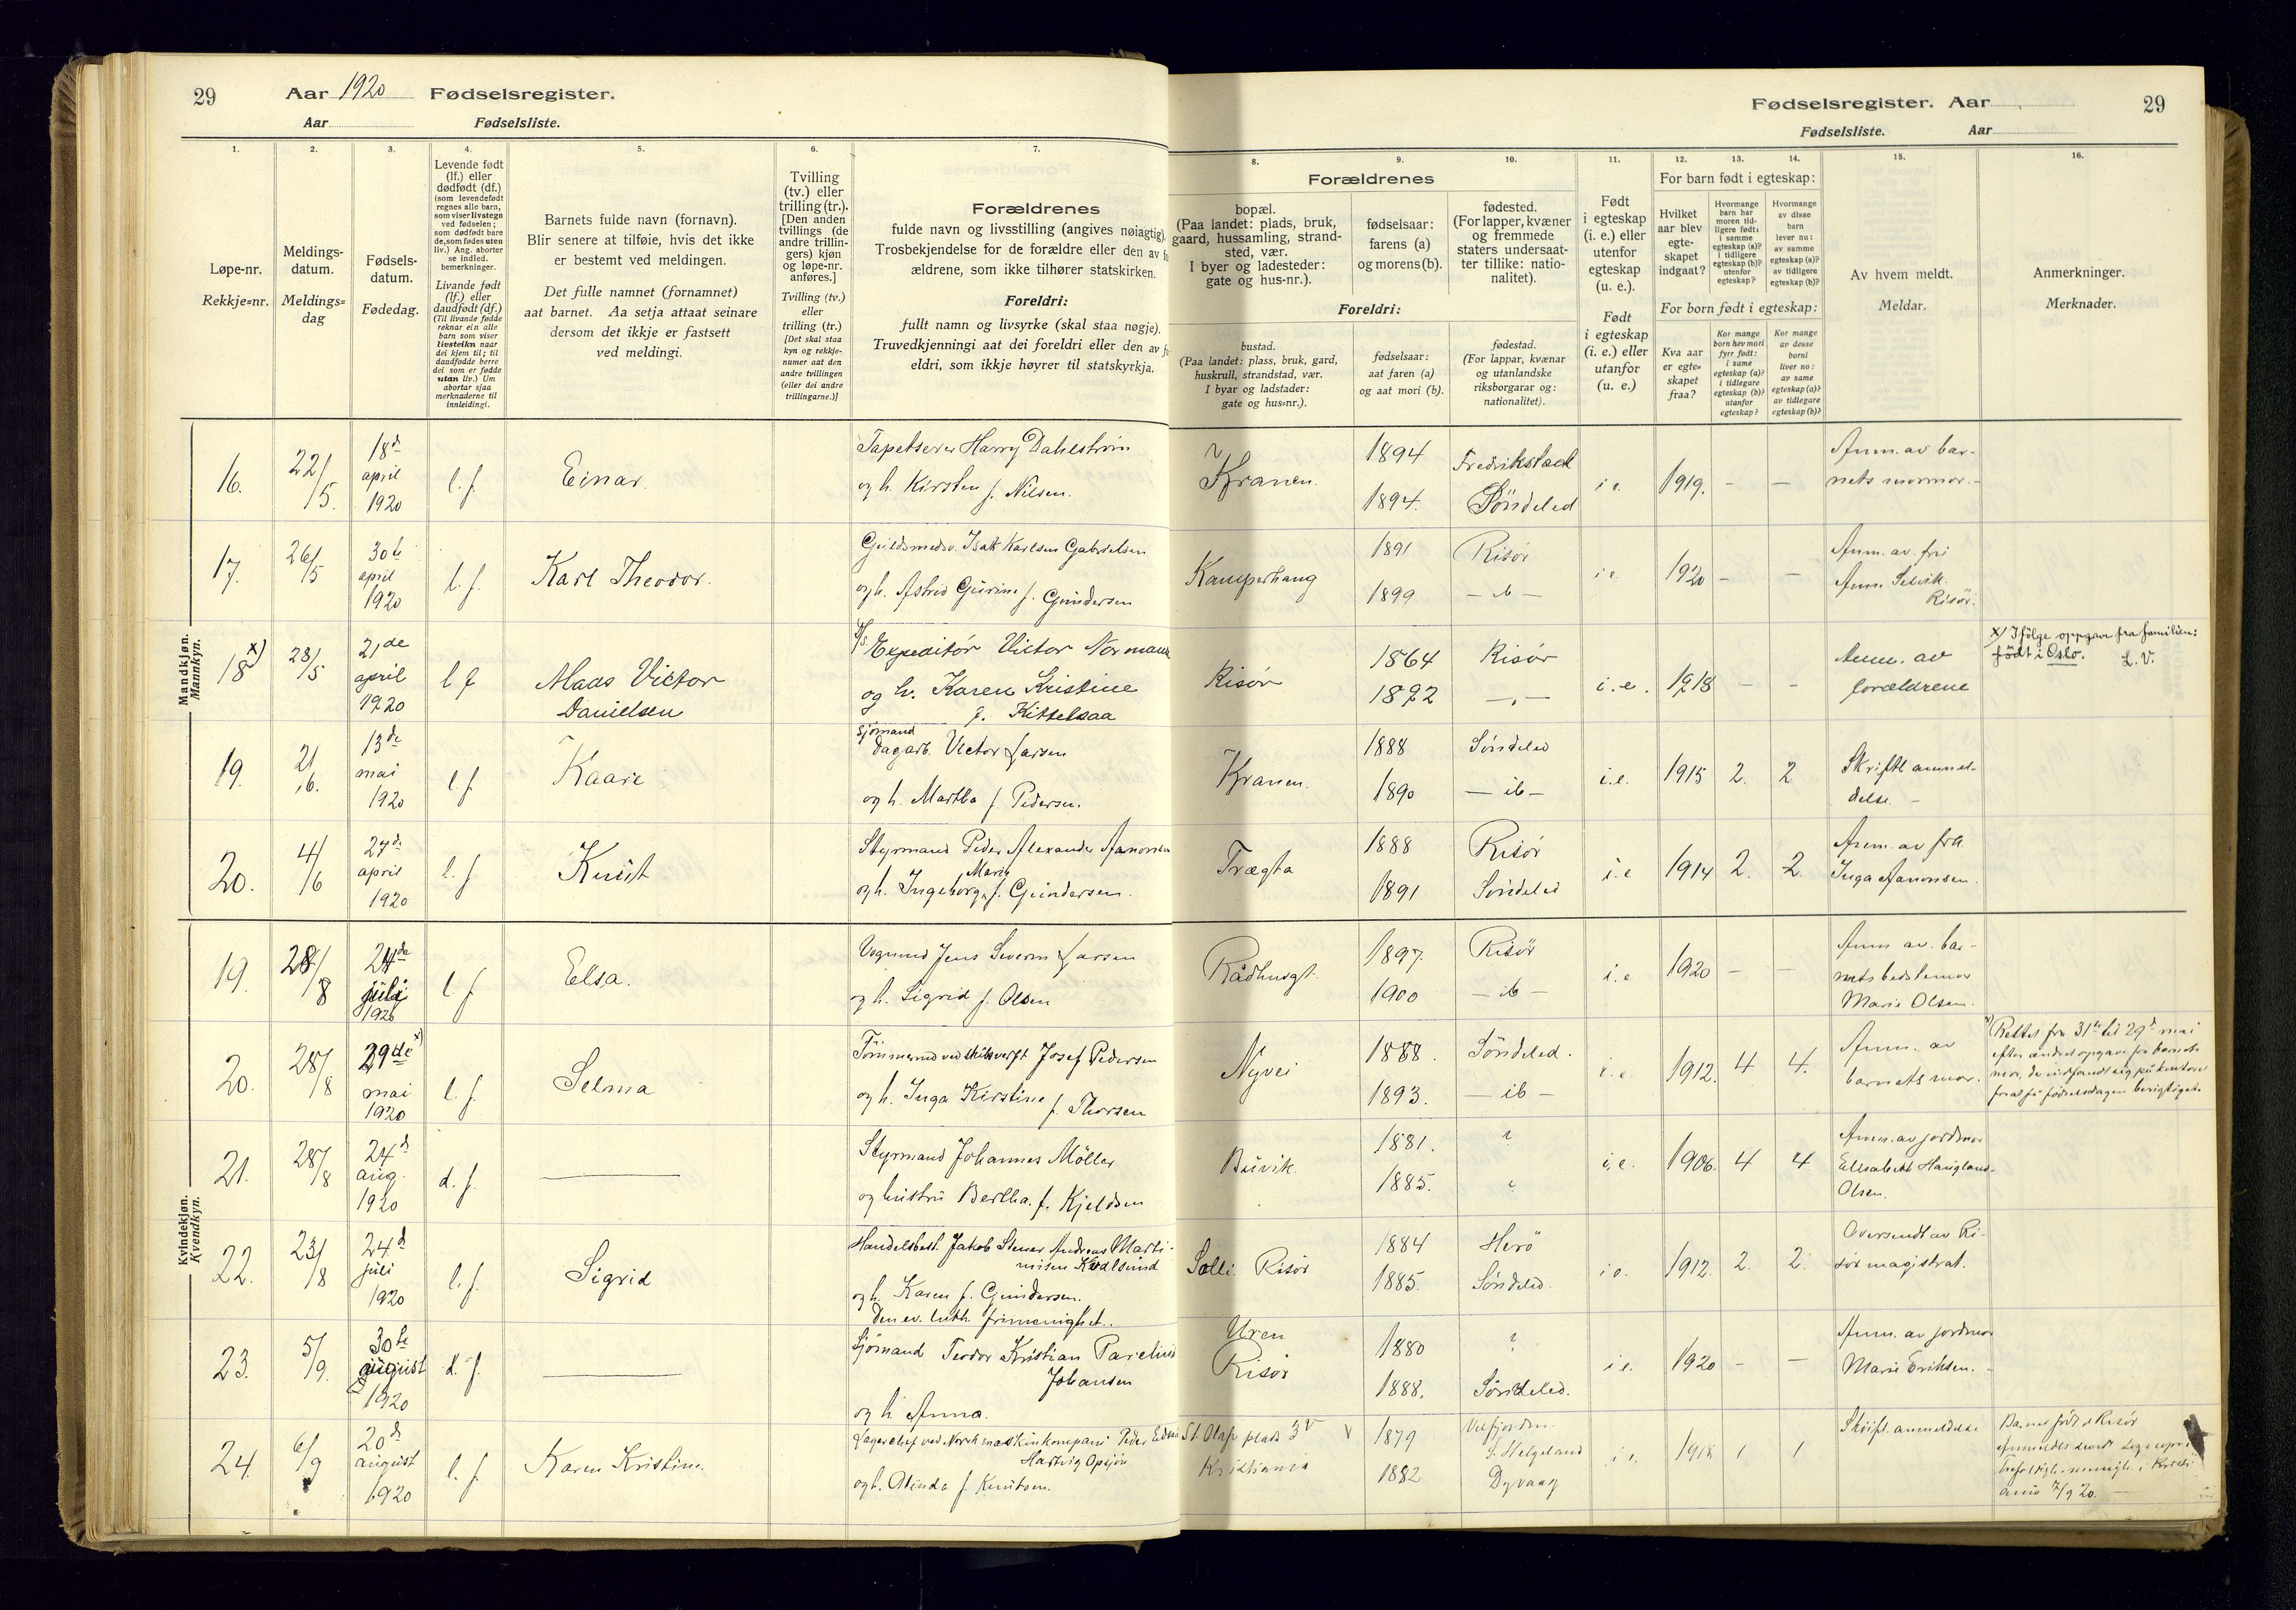 29
Aar 1920 Fødselsregister.
Aar Fødselsliste.
1.
2.
3.
4.
5.
6.
7.
Løpe-nr.
Rekkje=nr.
Meldings-
datum.
Meldings=
dag
Fødsels-
datum.
Fødedag.
Levende født
(lf.) eller
dødfødt (df.)
(som levendefødt
regnes alle barn,
som viser livstegn
ved fødselen;
som dødfødt bare
de, som fødes uten
liv.) Ang. aborter
se indled.
bemerkninger.
Livande født
(lf.) eller
daudfødt (df.)
(Til livande fødde
reknar ein alle
barn som viser
livsteikn naar
dei kjem til; til
daudfødde berre
dei som er fødde
utan liv.) Um
abortar sjaa
merknaderne til
innleidingi.
Barnets fulde navn (fornavn).
Blir senere at tilføie, hvis det ikke
er bestemt ved meldingen.
Det fulle namnet (fornamnet)
aat barnet. Aa setja attaat seinare
dersom det ikkje er fastsett
ved meldingi.
Tvilling
(tv.) eller
trilling (tr.).
[Den anden
tvillings (de
andre trillin-
gers) kjøn
og løpe-nr.
anføres.]
Tvilling (tv.)
eller
trilling (tr.)
[Det skal staa
kyn og rekkje-
numer aat den
andre tvillingen
(eller dei andre
trillingarne.)]
Forældrenes
fulde navn og livsstilling (angives nøiagtig).
Trosbekjendelse for de forældre eller den av
ældrene, som ikke tilhører statskirken.
Foreldri:
fullt namn og livsyrke (skal staa nøgje).
Truvedkjenningi aat dei foreldri eller den av
eldri, som ikkje høyrer til statskyrkja.
Mandkjøn.
Mannkyn.
16.
22/5.
18d
april
1920
l. f.
Einar.
Tapetserer Harry Dahlström
og h. Kirsten f. Nilsen.
17.
26/5
30te
april
1920
l. f.
Karl Theodor.
Guldsmedsv. Isak Karlsen Gabrielsen
og h. Astrid Gurine f. Gundersen
18 x)
28/5
21de
april
1920
l f
Maas Victor
Danielsen
Expeditør Victor Normann
og h. Karen Kristine
f. Kittelsaa
19.
2/6.
13de
mai
1920
l. f
Kaare
Sjømand
Dagarb. Victor Larsen
og h. Martha f. Pedersen.
20.
4/6
27de
april
1920
l. f
Knut
Styrmand Peder Alexander Aanonsen
Marie
og h. Ingeborg f. Gundersen.
Kvindekjøn.
Kvendkyn.
19.
28/8
24de
juli
1920
l. f
Elsa.
Vognmd Jens Severin Larsen
og h. Sigrid f. Olsen
20.
28/8
29de x)
mai
1920
l. f.
Selma
Tømmermd ved skibsverft Josef Pedersen
og h. Inga Kirstine f. Thorsen
21.
28/8
24d
aug.
1920
d. f.
Styrmand Johannes Möller
og hustru Bertha f. Kjeldsen
22.
23/8
24d
juli
1920
l. f.
Sigrid
Handelsbest. Jakob Stener Andreas Marti-
nisen Kvalsund
og h. Karen f. Gundersen.
Den ev. luth. frimenighet.
23.
5/9.
30te
august
1920
d. f.
Sjømand Teodor Kristian Parelius
Johansen
og h. Anna.
24.
6/9
20d
august
1920
l. f.
Karen Kristine.
Lagerchef ved Norsk maskinkompani Peder
Hartvig Opsjøn
og h. Olinda f. Knutsen.
Fødselsregister. Aar
29
Fødselsliste. Aar
8.
9.
10.
11.
12.
13.
14.
15.
16.
Forældrenes
bopæl.
(Paa landet: plads, bruk,
gaard, hussamling, strand-
sted, vær.
I byer og ladesteder:
gate og hus-nr.).
fødselsaar:
farens (a)
og morens (b).
fødested.
(For lapper, kvæner
og fremmede
staters undersaat-
ter tillike: natio-
nalitet).
Foreldri:
bustad.
(Paa landet: plass, bruk, gard,
huskrull, strandstad, vær.
I byar og ladstader:
gate og hus=nr.).
fødselsaar:
aat faren (a)
og aat mori (b).
fødestad.
(For lappar, kvænar
og utanlandske
riksborgarar og:
nationalitet).
Født
i egteskap
(i. e.) eller
utenfor
egteskap
(u. e.).
Født
i egteskap
(i. e.) eller
utanfor
(u. e.)
For barn født i egteskap:
Hvilket
aar blev
egte-
skapet
indgaat?
Hvormange
barn har
moren tid-
ligere født:
i samme
egteskap (a)?
i tidligere
egteskap (b)?
utenfor
egteskap?
Hvormange
av disse
barn
lever nu:
av samme
egteskap (a)?
av tidligere
egteskap (b)?
For born født i egteskap:
Kva aar
er egte=
skapet
fraa?
Kor mange
born hev mori
fyrr født:
i same
egteskap (a)?
i tidlegare
egteskap (b)?
utanfor
egteskap?
Kor mange
av desse
borni
liver no:
av same
egteskap (a)?
av tidlegare
egteskap (b)?
Av hvem meldt.
Meldar.
Anmerkninger.
Merknader.
Kranen.
1894
1894.
Fredrikstad
Söndeled
i e.
1919.
-
-
Anm. av bar-
nets mormor.
Kamperhaug
1891
1899
Risör
- ib -
i e.
1920
-
-
Anm. av fru
Anna Selvik.
Risör.
Risør
1864
1892
Risør
- „ -
i. e.
1918
-
-
Anm. av
forældrene
x) Ifølge oppgave fra familien:
født i Oslo. L. V.
Kranen.
1888
1890
Söndeled
- ib -
i. e.
1915
2.
2
Skriftl. anmel-
delse.
Trægta
1888
1891
Risör
Söndeled
i. e
1914
2.
2.
Anm. av fra
Inga Aanonsen.
Rådhusgt.
1897.
1900
Risör
- ib -
i. e
1920
-
-
Anm av bar-
nets bedstemor
Marie Olsen.
Nyvei
1888.
1893.
Söndeled.
- ib -
i. e.
1912.
4
4.
Anm. av
barnets mor.
x) Rettet fra 31te til 29d mai
efter ændret opgave fra barnets
mor, da indfandt sig på kontoret
for at få fødselsdagen berigtiget.
Buvik.
1881.
1885.
?
?
i. e.
1906.
4
4
Anm. av jordmor
Elisabeth Haugland-
Olsen.
Solli. Risör
1884
1885.
Herö
Söndeled.
i e.
1912.
2.
2.
Oversendt av Ri-
sör magistrat.
Uren
Risör
1880
1888.
?
Söndeled.
i e.
1920
-
-
Anm. av jordmor
Marie Eriksen.
St. Olafs plads 3 V
Kristiania
1879
1882
Velfjorden
S. Helgeland
Dyvaag
i e.
1918
1
1
Skriftl. anmeldelse
Barnet født i Risör
7/9 20.